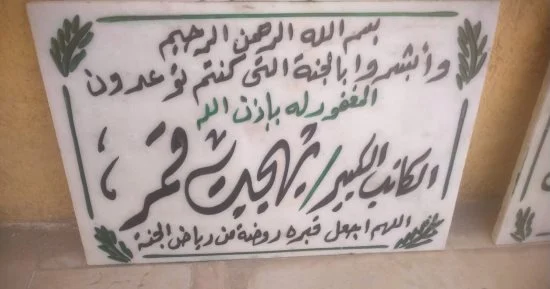 بسم الله الرحمن الرحيم
وأبشروا بالجنة التى كنتم توعدون
المغفور له بإذن الله
الكاتب الكبير / بهجت قمر
اللهم اجعل قبره روضة من رياض الجنة